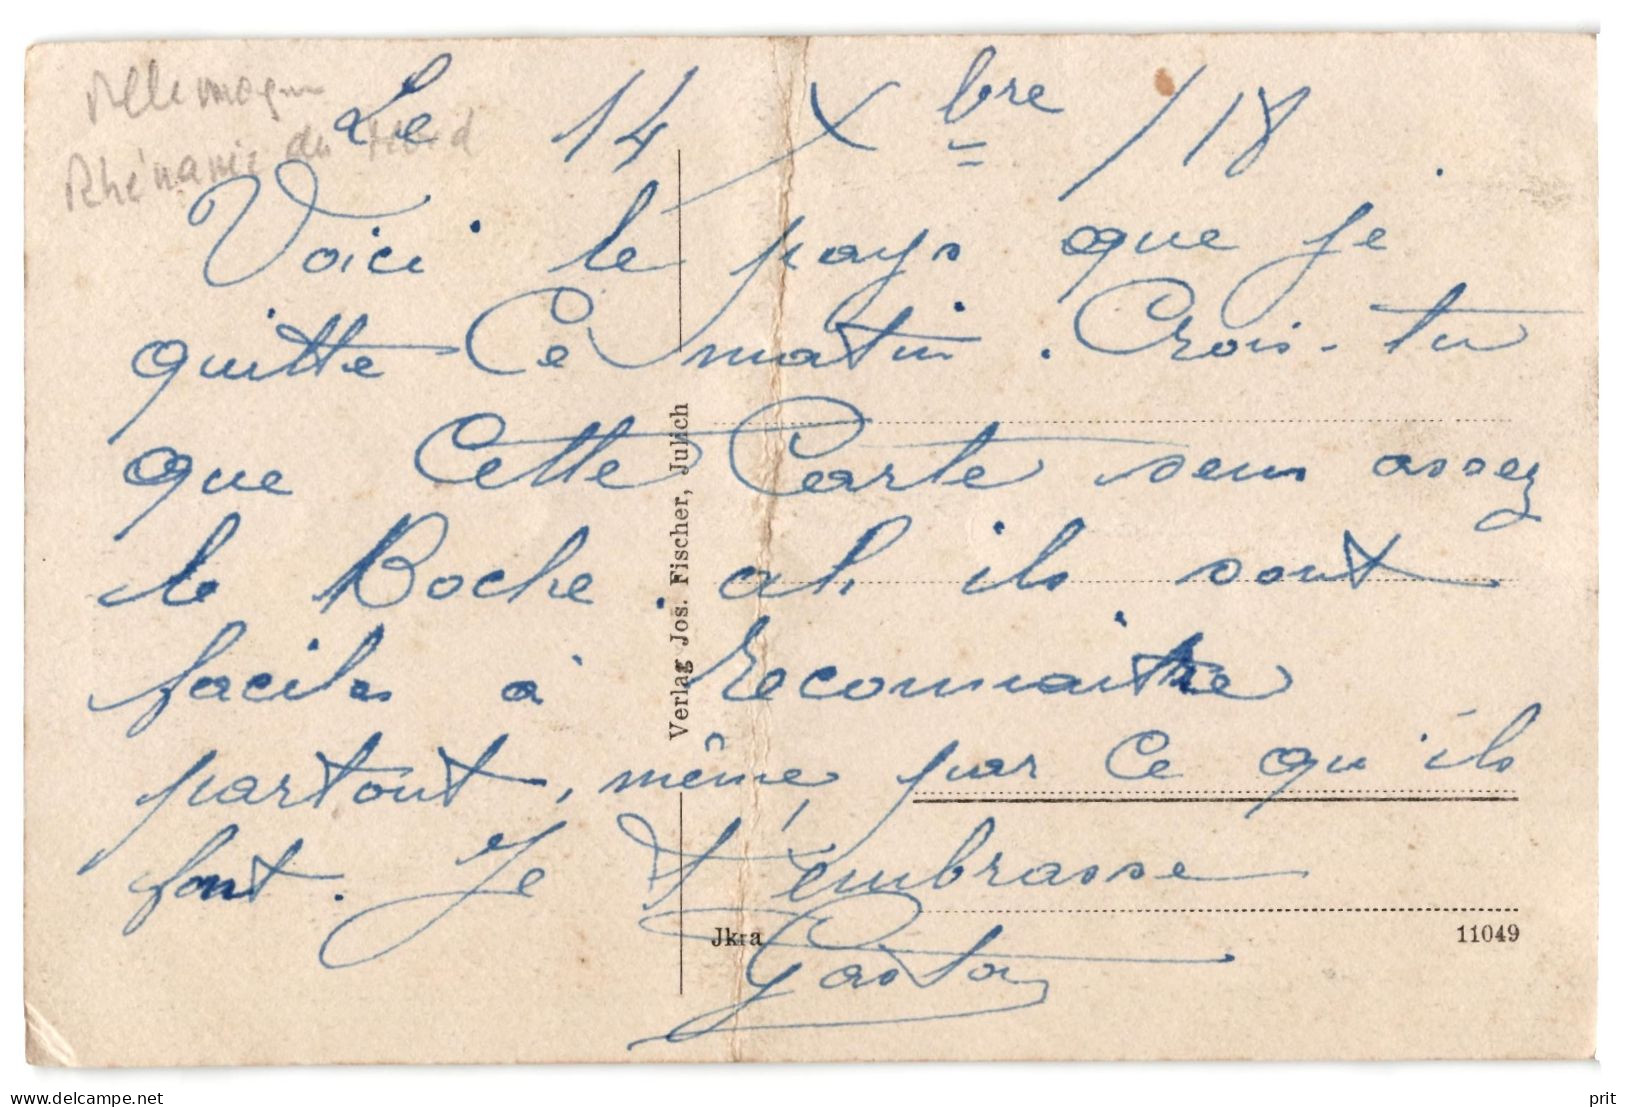 Allemagne
Rhénanie du Nord
Le 14 Xbre / 18.
Voici le pays que je
quitte Ce matin. Crois-tu
que Cette Carte sens assez
le Boche. ah ils sont
faciles à reconnaitre
partout, même, par ce qu'ils
font. Je t'embrasse
Gaston
Verlag Jos. Fischer, Julich
Jkra
11049
www.delcampe.net
prit